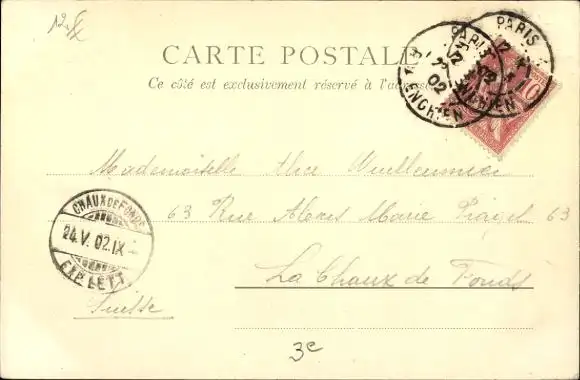 12.
CARTE POSTALE
Ce côté est exclusivement réservé à l'adresse
PARIS
PARIS
ENGHIEN
02
ENGHIEN
10
Mademoiselle Alice Wuilleumier
63 Rue Alexis Marie Piaget 63
La Chaux de Fonds
Suisse
CHAUX DE FONDS
24.V.02.IX
EXP. LETT.
3e